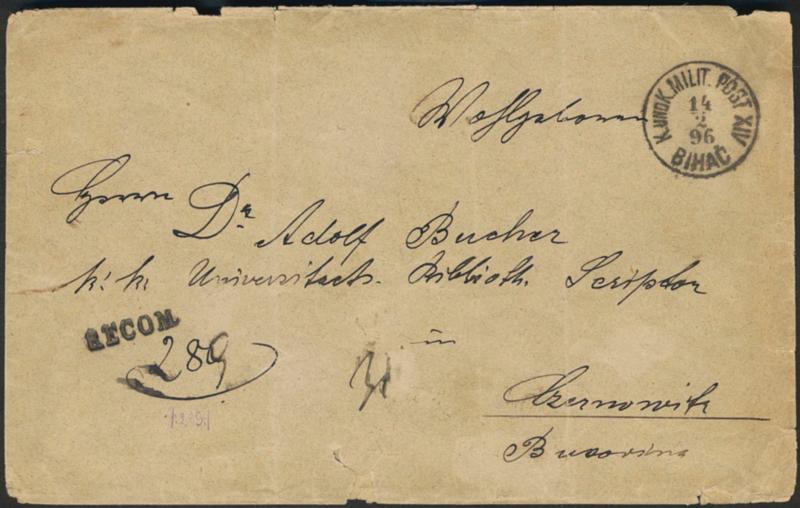 Wohlgeboren
K. UND K. MILIT. POST XIV
14
2
96
BIHAČ
Herrn
Dr. Adolf Bucher
k. k. Universitaets. Biblioth. Scriptor
RECOM.
289
in
Czernowitz
Bucovina